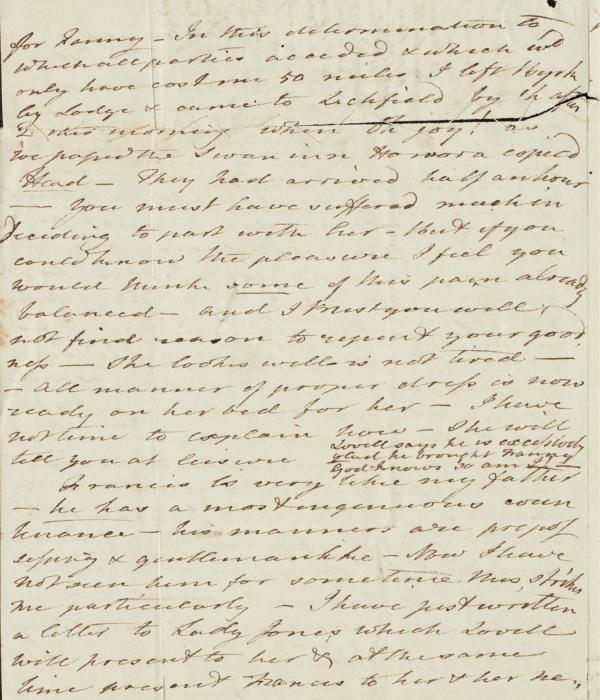 for Fanny - In this determination to
which all parties acceded & which wd
only have cost me 50 miles. I left
by Lodge & came to Lichfield by
this morning when Oh joy! as
we passed the Swan inn Honora espied
Head - They had arrived half an hour
- You must have suffered much in
deciding to part with her - But if you
could know the pleasure I feel you
would think some of this pain already
balanced - and I trust you will
not find reason to repent your good
ness - She looks well - is not tired -
- all manner of proper dress is now
ready on her bed for her - I have
not time to explain how - She will
tell you at leisure
Lovell says he is excessively
glad he brought Fanny
God knows so am I
Francis is very like my father
- he has a most ingenuous coun
tenance - his manners are prepos
sessing & gentlemanlike - Now I have
not seen him for sometime this strikes
me particularly - I have just written
a letter to Lady Jones which Lovell
will present to her & at the same
time present Francis to her & her